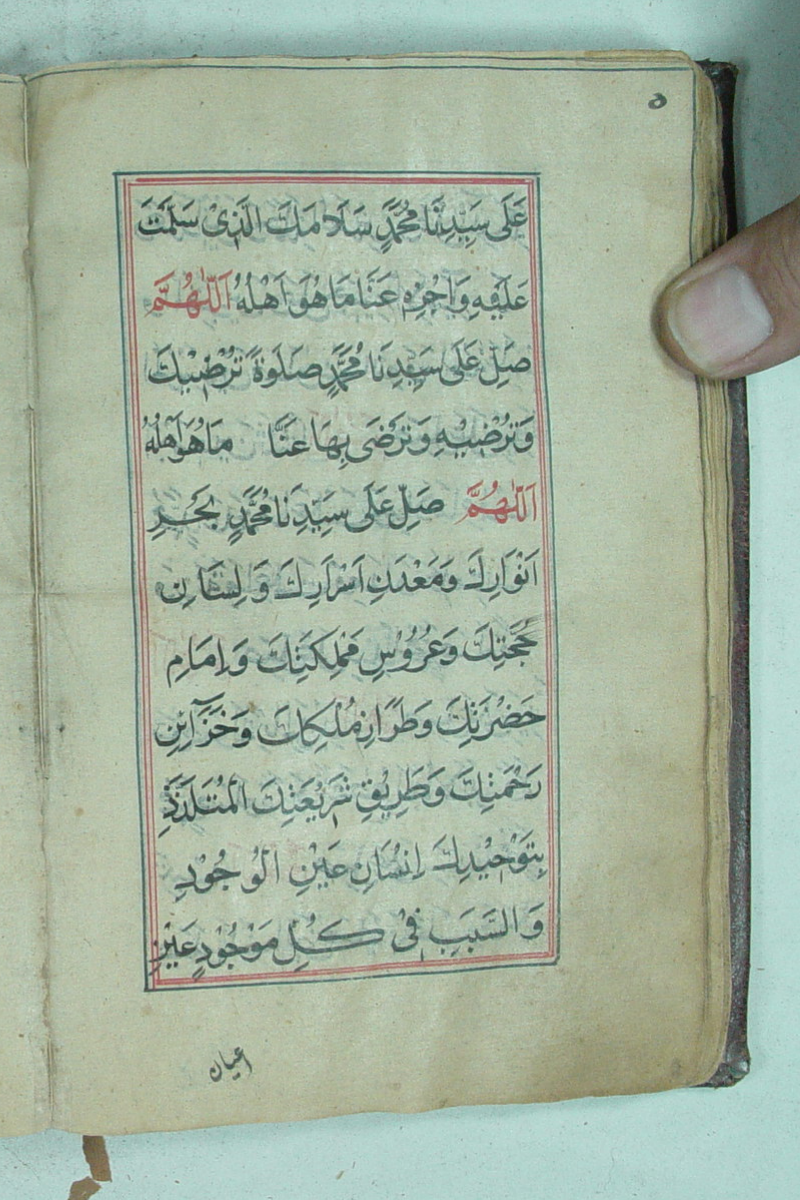 ٥
عَلَى سَيِّدِنَا مُحَمَّدٍ سَلَامَكَ الَّذِىْ سَلَّمْتَ
عَلَيْهِ وَاجْزِهِ عَنَّا مَا هُوَ اَهْلُهُ اَللّٰهُمَّ
صَلِّ عَلَى سَيِّدِنَا مُحَمَّدٍ صَلَوةً تُرْضِيْكَ
وَتُرْضِيْهِ وَتَرْضَى بِهَا عَنَّا مَا هُوَ اَهْلُهُ
اَللّٰهُمَّ صَلِّ عَلَى سَيِّدِنَا مُحَمَّدٍ بَحْرِ
اَنْوَارِكَ وَمَعْدَنِ اَسْرَارِكَ وَلِسَانِ
حُجَّتِكَ وَعُرُوْسِ مَمْلِكَتِكَ وَاِمَامِ
حَضْرَتِكَ وَطَرَازِ مُلْكِكَ وَخَزَآئِنِ
رَحْمَتِكَ وَطَرِيْقِ شَرِيْعَتِكَ الْمُتَلَذِّذِ
بِتَوْحِيْدِكَ اِنْسَانِ عَيْنِ الْوُجُوْدِ
وَالسَّبَبِ فِىْ كُلِّ مَوْجُوْدٍ عَيْنِ
اعيان